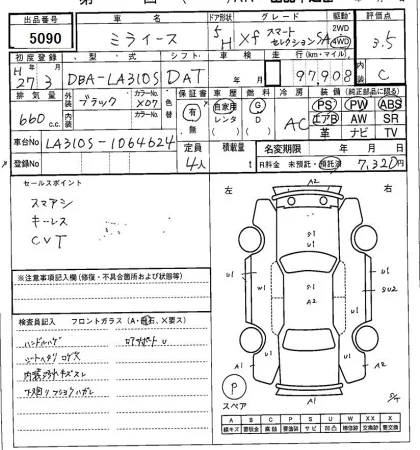 出品番号 車名 ドア形状 グレード 駆動 評価点
5090 ミライース 5 H Xf スマートセレクションSA 2WD 4WD 3.5
初度登録 型式 シフト 車検 走行(km・マイル) 内装
H27 3 DBA-LA310S DAT 年 月 97,908 C
排気量 外装 色 カラーNo. 色替 保証書 車歴 燃料 冷房 装備(純正部品に限る)
660 c.c. ブラック X07 有 無 自家用 レンタ G D AC PS PW ABS
エアB AW SR
革 ナビ TV
車台No LA310S-1064624 定員 積載量 名変期限 年 月 日
登録No 4人 t R料金 未預託・預託済 7,320円
セールスポイント 左 右
スマアシ
キーレス
CVT
A2
U1 S1 U1
U1 W1 S1 A2 U1 SU2
U1 U1
A1 A1 A2
※注意事項記入欄(修復・不具合箇所および状態等)
検査員記入 フロントガラス(A・飛石、X要ス)
ハンドルハゲ ロアサポートU
シートヘタリ コゲ穴
内装汚れキズスレ
下廻りフショウハガレ
P
スペア
A B C P S U W X XX
線キズ 要板金 腐蝕 要塗装 サビ 凹凸 補修跡 要交換 交換跡